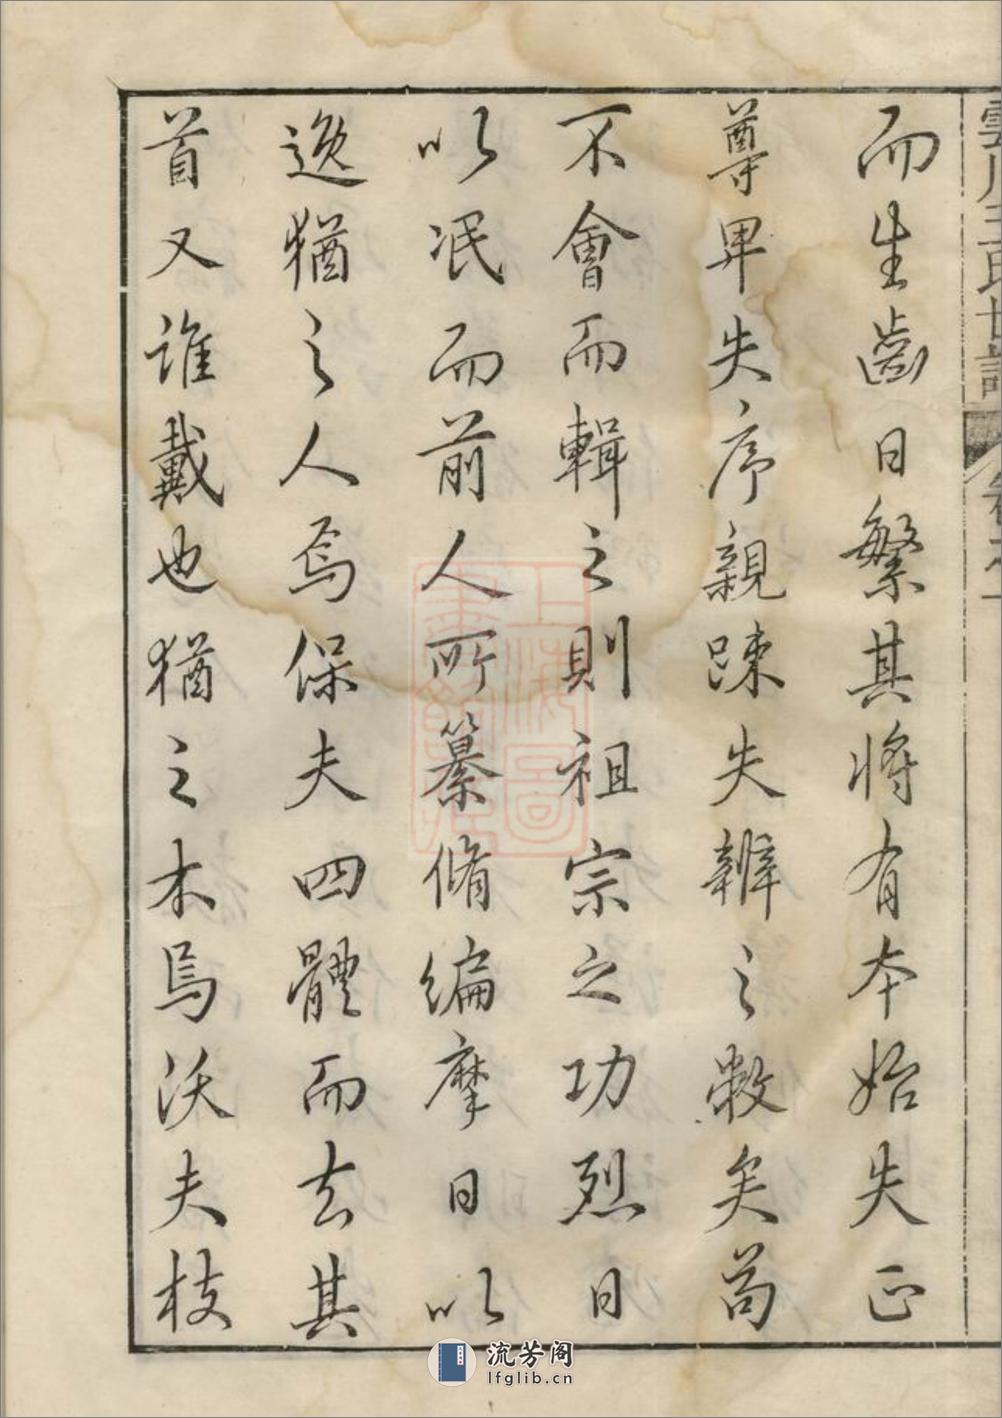 而生齒日繁其將有本始失正
尊卑失序親踈失辨之弊矣苟
不會而輯之則祖宗之功烈日
以泯而前人所纂脩編摩日以
逸猶之人焉保夫四體而去其
首又誰戴也猶之木焉沃夫枝
上海圖書館藏
流芳阁
lfglib.cn